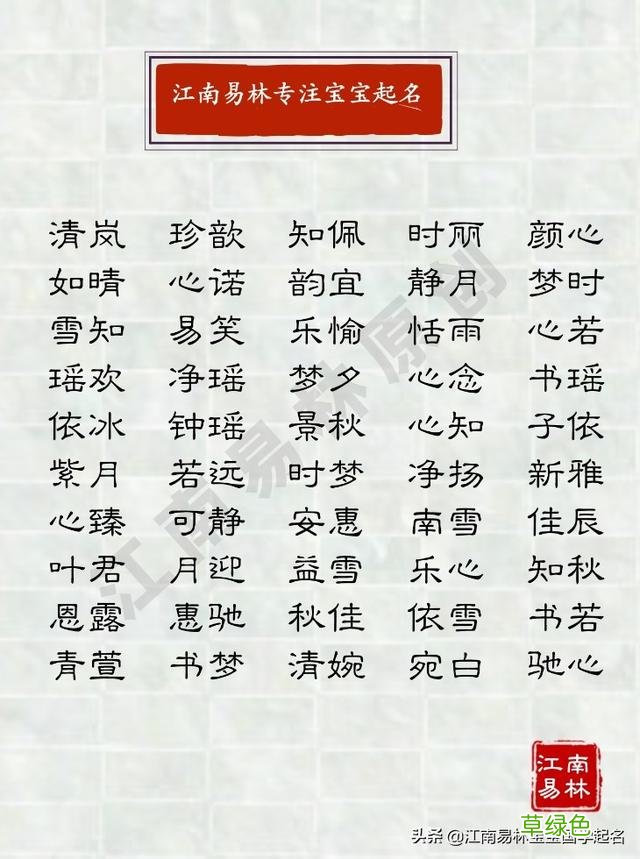 江南易林专注宝宝起名
清岚 珍歆 知佩 时丽 颜心
如晴 心诺 韵宜 静月 梦时
雪知 易笑 乐愉 恬雨 心若
瑶欢 净瑶 梦夕 心念 书瑶
依冰 钟瑶 景秋 心知 子依
紫月 若远 时梦 净扬 新雅
心臻 可静 安惠 南雪 佳辰
叶君 月迎 益雪 乐心 知秋
恩露 惠驰 秋佳 依雪 书若
青萱 书梦 清婉 宛白 驰心
江南易林原创
江南
易林
草绿色
头条 @江南易林宝宝国学起名